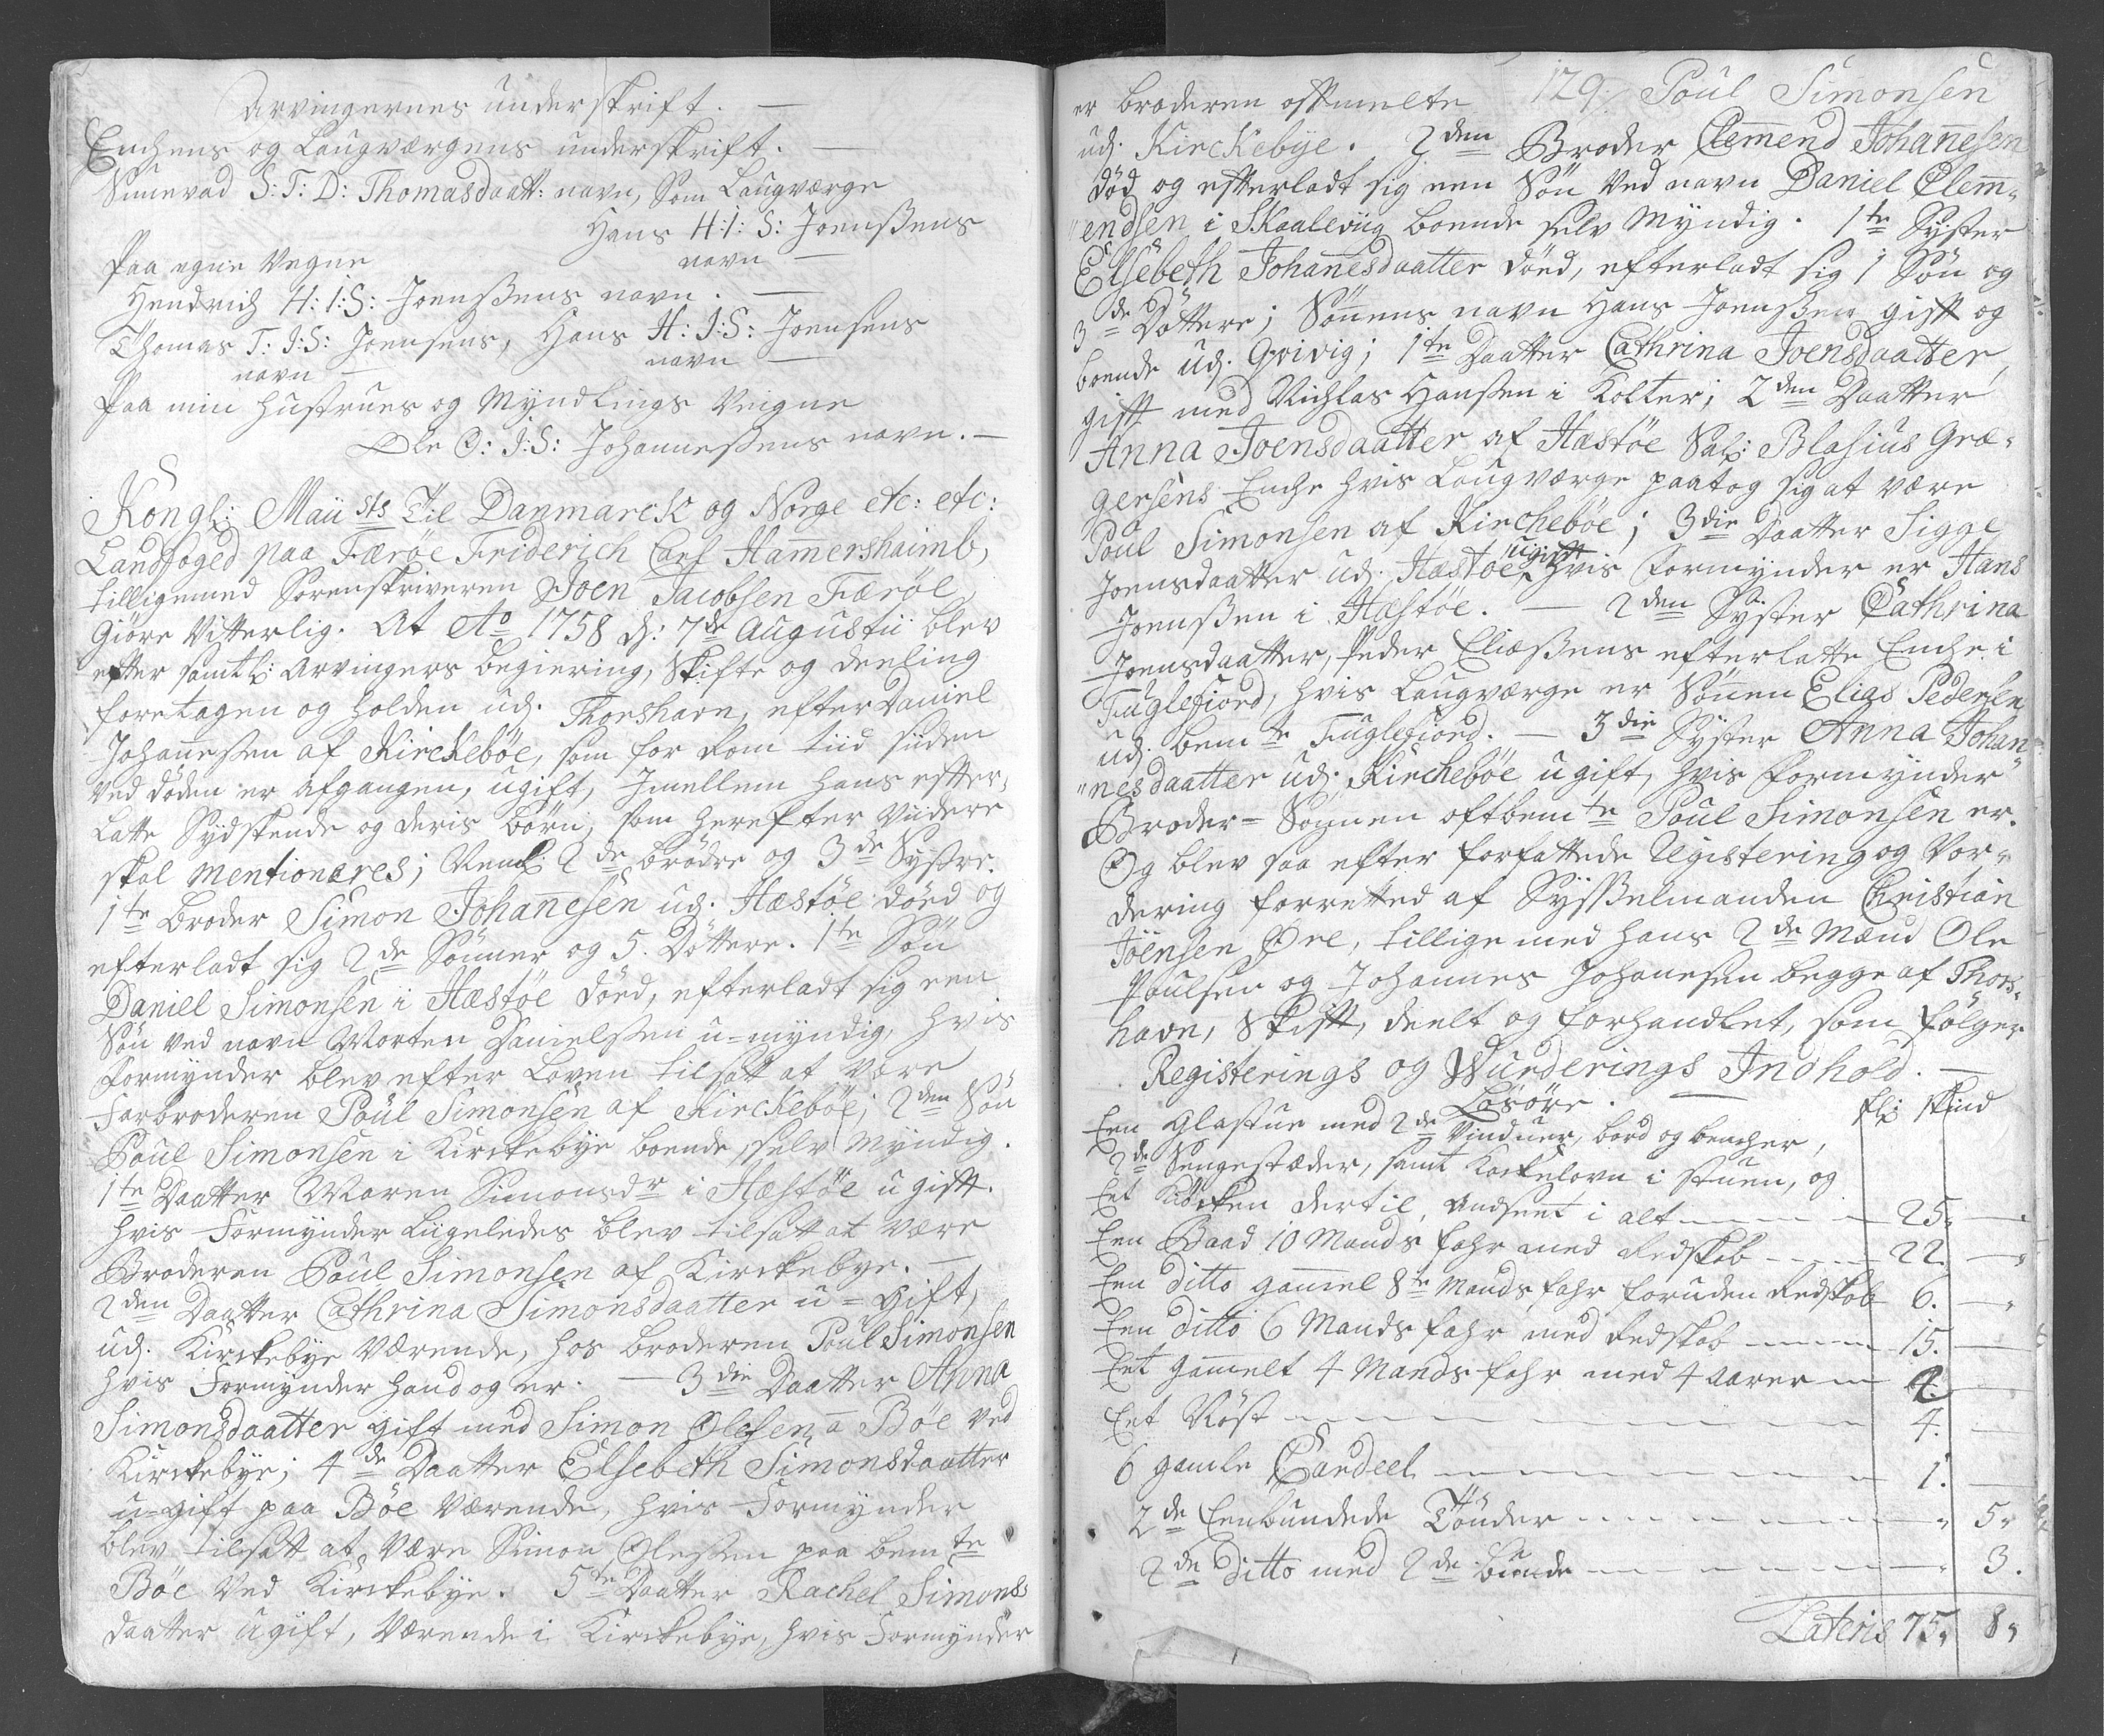 Arvingernes underskrift. —
Enchens og Laugværgens underskrift. —
Sunevad S: T: D: Thomasdaatt: navn, Som Laugværge
Hans H: I: S: Joenssens
navn —
Paa egne Vegne
Hendrich H: I: S: Joenssens navn. —
Thomas T: I: S: Joensens, Hans H: I: S: Joensens
navn — navn —
Paa min Hustrues og Myndlings Veigne
Ole O: I: S: Johannessens navn. —
Kongl: Maiists Til Danmarck og Norge etc: etc:
Landfoged paa Færöe Friderich Carl Ham̄ershaimb,
tilligemed Sorenskriveren Joen Jacobsen Færöe
Giöre Vitterlig. At Ao 1758 d: 7de Augustii blev
efter samtl: Arvingers begiering, Skifte og deeling
foretagen og holden udj Thorshavn, efter Daniel
Johan̄essen af Kirckeböe, som for kom tiid siiden
ved döden er afgangen, ugift, Imellem hans efter-
latte Sydskende og deris börn, som herefter Viidere
skal mentioneres; Neml: 2de brödre og 3de Systre.
1te Broder Simon Johan̄esen udj Hæstöe död og
efterladt sig 2de Sönner og 5. Döttere. 1te Sön
Daniel Simonsen i Hæstöe död, efterladt sig een
Sön ved navn Morten Danielssen u-myndig, hvis
Formynder blev efter Loven tilsatt at være
Farbroderen Poul Simonsen af Kirckeböe; 2den Sön
Poul Simonsen i Kirckebye boende, selv Myndig.
1te Daatter Maren Simonsdr i Hæstöe ugift.
hvis Formynder Liigeledes blev tilsatt at være
Broderen Poul Simonsen af Kirckebye. —
2den Daatter Cathrina Simonsdaatter u-gift,
udj Kirckebye Værende, hos broderen Poul Simonsen
hvis Formynder hand og er. — 3die Daatter Anna
Simonsdaatter gift med Simon Olesen a Böe ved
Kirckebye; 4de Daatter Elsebeth Simonsdaatter
u-gift paa Böe Værende, hvis Formynder
blev tilsatt at Være Simon Olessen paa bemte
Böe Ved Kirckebye. 5te Daatter Rachel Simons-
daatter ugift, Værende i Kirckebye, hvis Formynder
129. Poul Simonsen
er broderen oftmelte
udj Kirckebye. 2den Broder Clem̄end Johan̄esen
död og efterladt sig een Sön Ved navn Daniel Clem̄-
endsen i Skaaleviig boende selv Myndig. 1te Syster
Elsebeth Johan̄esdaatter död, efterladt sig 1 Sön og
3de Döttere; Sönnens navn Hans Joenssen gift og
boende udj Qvivig; 1te Daatter Cathrina Joensdaatter,
gift med Nichlas Hanssen i Kolter; 2den Daatter
Anna Joensdaatter af Hæstöe Sal: Blasius Græ-
gersens Enche hvis Laugværge paatog sig at være
Poul Simonsen af Kirckeböe; 3die Daatter Sigge
Joensdaatter udj Hæstöe ugift hvis Formynder er Hans
Joenssen i Hæstöe. — 2den Syster Cathrina
Joensdaatter, Peder Eliæssens efterlatte Enche i
Fuglefiord, hvis Laugværge er Sönnen Elias Pedersen
udj bemte Fuglefiord. — 3die Syster Anna Johan-
nesdaatter udj Kirckeböe ugift, hvis Formynder
Broder-Sönnen oftbemte Poul Simonsen er.
Og blev saa efter forfattede Registering og Vor-
dering forretted af Sysselmanden Christian
Joensen Öre, tillige med hans 2de Mænd Ole
Poulsen og Johannes Johanesen begge af Thors-
havn, Skift, deelt og forhandlet, som fölger
Registerings og Wurderings Indhold. —
Lösöre. — fl: skind
Een Glastue med 2de Vinduer, bord og bencher,
2de Sengestæder, samt Kackelovn i stuen, og
Eet Köcken dertil, Andseet i alt — 25. —
Een Baad 10 Mands fahr med Redskab — 22. —
Een ditto gam̄el 8te Mands fahr foruden Redskab 6. —
Een ditto 6 Mands fahr med Redskab — 15. —
Eet gam̄elt 4 Mands fahr med 4 aarer — 2. —
Eet Nöst — 4. —
6 gamle Bandeel — 1. —
2de Eenbundede Tönder — 5.
2de ditto med 2de bunde — 3.
Lateris 75. 8.